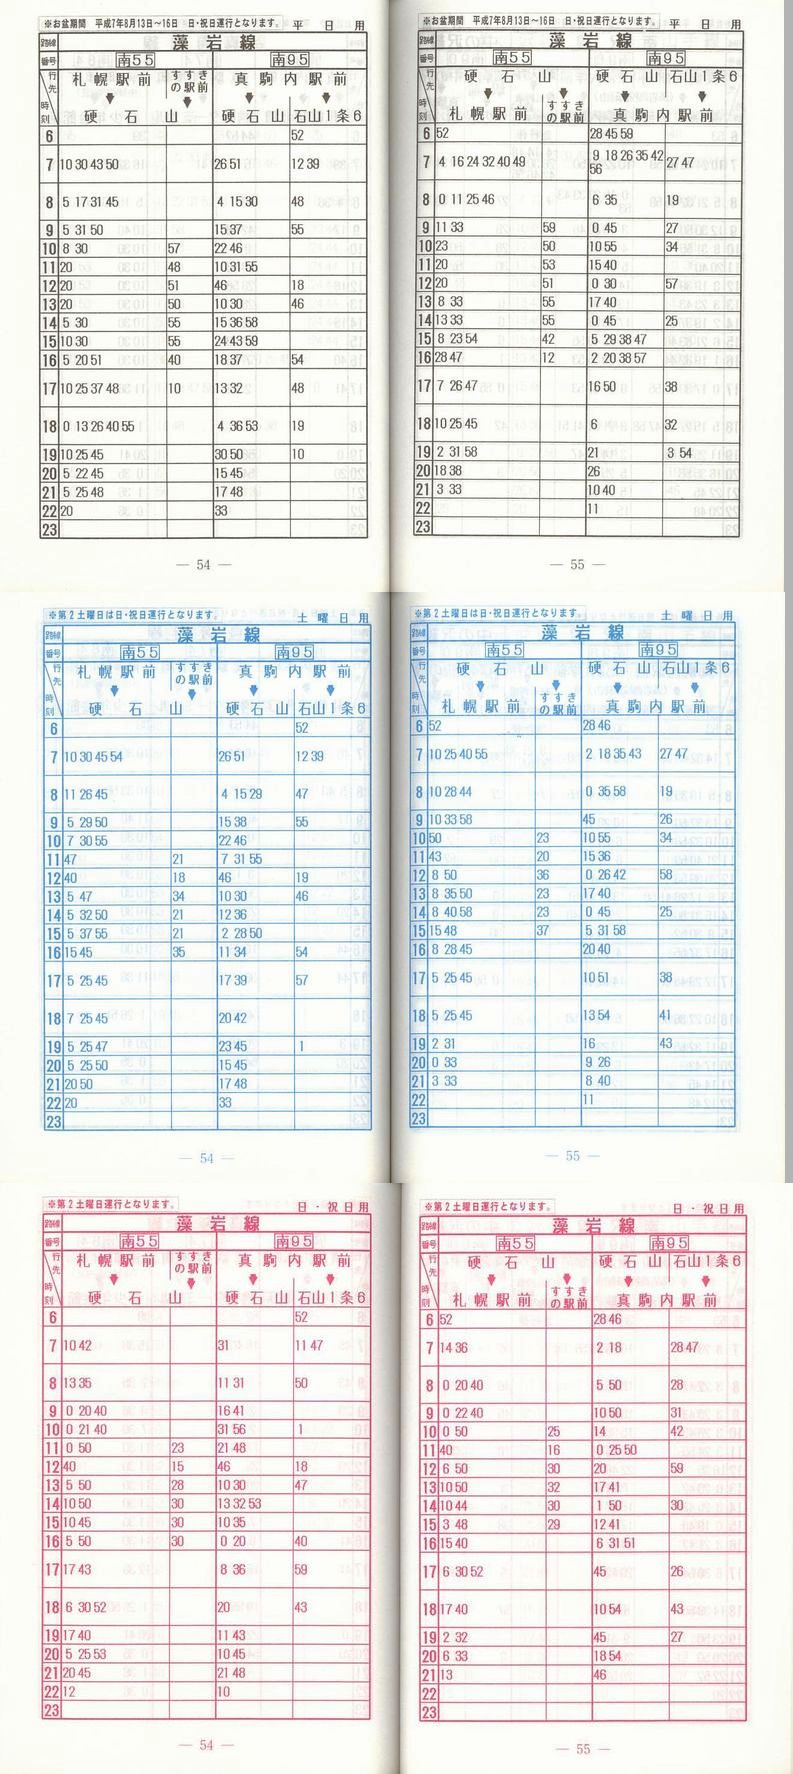 ※お盆期間 平成7年8月13日～16日 日・祝日運行となります。 平 日 用
路線 藻 岩 線
番号 南55 南95
行先 札幌駅前 すすきの駅前 真駒内駅前
時刻 硬石山 硬石山 石山1条6
6 52
7 10 30 43 50 26 51 12 39
8 5 17 31 45 4 15 30 48
9 5 31 50 15 37 55
10 8 30 57 22 46
11 20 48 10 31 55
12 20 51 46 18
13 20 50 10 30 46
14 5 30 55 15 36 58
15 10 30 55 24 43 59
16 5 20 51 40 18 37 54
17 10 25 37 48 10 13 32 48
18 0 13 26 40 55 4 36 53 19
19 10 25 45 30 50 10
20 5 22 45 15 45
21 5 25 48 17 48
22 20 33
23
— 54 —
※お盆期間 平成7年8月13日～16日 日・祝日運行となります。 平 日 用
路線 藻 岩 線
番号 南55 南95
行先 硬石山 硬石山 石山1条6
時刻 札幌駅前 すすきの駅前 真駒内駅前
6 52 28 45 59
7 4 16 24 32 40 49 9 18 26 35 42 56 27 47
8 0 11 25 46 6 35 19
9 11 33 59 0 45 27
10 23 50 10 55 34
11 20 53 15 40
12 20 51 0 30 57
13 8 33 55 17 40
14 13 33 55 0 45 25
15 8 23 54 42 5 29 38 47
16 28 47 12 2 20 38 57
17 7 26 47 16 50 38
18 10 25 45 6 32
19 2 31 58 21 3 54
20 18 38 26
21 3 33 10 40
22 11
23
— 55 —
※第2土曜日は日・祝日運行となります。 土 曜 日 用
路線 藻 岩 線
番号 南55 南95
行先 札幌駅前 すすきの駅前 真駒内駅前
時刻 硬石山 硬石山 石山1条6
6 52
7 10 30 45 54 26 51 12 39
8 11 26 45 4 15 29 47
9 5 29 50 15 38 55
10 7 30 55 22 46
11 47 21 7 31 55
12 40 18 46 19
13 5 47 34 10 30 46
14 5 32 50 21 12 36
15 5 37 55 21 2 28 50
16 15 45 35 11 34 54
17 5 25 45 17 39 57
18 7 25 45 20 42
19 5 25 47 23 45 1
20 5 25 50 15 45
21 20 50 17 48
22 20 33
23
— 54 —
※第2土曜日は日・祝日運行となります。 土 曜 日 用
路線 藻 岩 線
番号 南55 南95
行先 硬石山 硬石山 石山1条6
時刻 札幌駅前 すすきの駅前 真駒内駅前
6 52 28 46
7 10 25 40 55 2 18 35 43 27 47
8 10 28 44 0 35 58 19
9 10 33 58 45 26
10 50 23 10 55 34
11 43 20 15 36
12 8 50 36 0 26 42 58
13 8 35 50 23 17 40
14 8 40 58 23 0 45 25
15 15 48 37 5 31 58
16 8 28 45 20 40
17 5 25 45 10 51 38
18 5 25 45 13 54 41
19 2 31 16 43
20 0 33 9 26
21 3 33 8 40
22 11
23
— 55 —
※第2土曜日運行となります。 日・祝日用
路線 藻 岩 線
番号 南55 南95
行先 札幌駅前 すすきの駅前 真駒内駅前
時刻 硬石山 硬石山 石山1条6
6 52
7 10 42 31 11 47
8 13 35 11 31 50
9 0 20 40 16 41
10 0 21 40 31 56 1
11 0 50 23 21 48
12 40 15 46 18
13 5 50 28 10 30 47
14 10 50 30 13 32 53
15 10 45 30 10 35
16 5 50 30 0 20 40
17 17 43 8 36 59
18 6 30 52 20 43
19 17 40 11 43
20 5 25 53 10 45
21 20 45 21 48
22 12 10
23
— 54 —
※第2土曜日運行となります。 日・祝日用
路線 藻 岩 線
番号 南55 南95
行先 硬石山 硬石山 石山1条6
時刻 札幌駅前 すすきの駅前 真駒内駅前
6 52 28 46
7 14 36 2 18 28 47
8 0 20 40 5 50 28
9 0 22 40 10 50 31
10 0 50 25 14 42
11 40 16 0 25 50
12 6 50 30 20 59
13 10 50 32 17 41
14 10 44 30 1 50 30
15 3 48 29 12 41
16 15 40 6 31 51
17 6 30 52 45 26
18 17 40 10 54 43
19 2 32 45 27
20 6 33 18 54
21 13 46
22
23
— 55 —